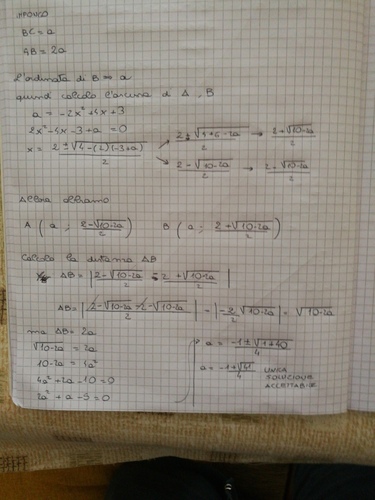 IMPONGO
BC = a
AB = 2a
L'ordinata di B = a
quindi calcolo l'ascissa di A, B
a = -2x² + 4x + 3
2x² - 4x - 3 + a = 0
x = 2 ± √4 - (2)(-3+a) / 2 → 2 ± √4+6-2a / 2 → 2 + √10-2a / 2
2 - √10-2a / 2 → 2 - √10-2a / 2
Allora abbiamo
A ( a ; 2-√10-2a / 2 ) B ( a ; 2+√10-2a / 2 )
Calcolo la distanza AB
AB = | 2-√10-2a / 2 - 2+√10-2a / 2 |
AB = | 2-√10-2a -2-√10-2a / 2 | = | -2/2 √10-2a | = √10-2a
ma AB = 2a
√10-2a = 2a
10-2a = 4a²
4a² + 2a - 10 = 0
2a² + a - 5 = 0
a = -1 ± √1+40 / 4
a = -1+√41 / 4 UNICA
SOLUZIONE
ACCETTABILE